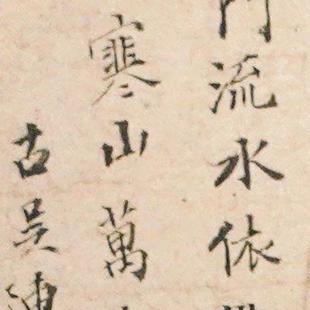 門流水依
寒山萬
古吳